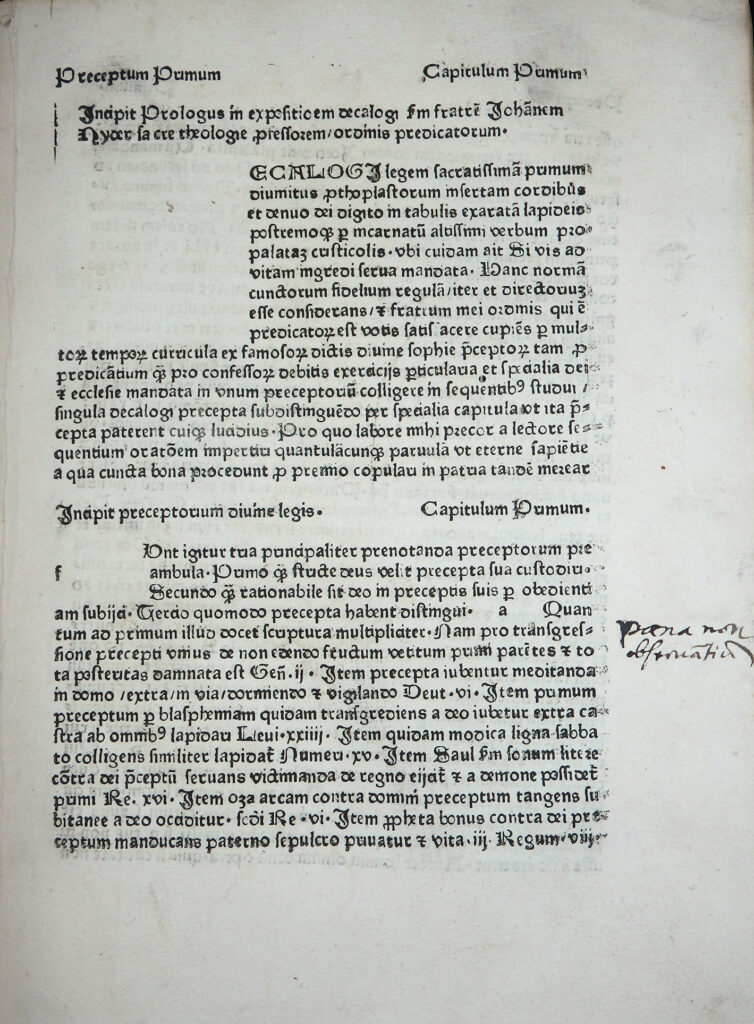 Preceptum Primum Capitulum Primum
Incipit Prologus in expositioem decalogi ẜm fratrẽ Johãnem
Nyder sa cre theologie ꝓfessorem/ordinis predicatorum.
ECALOGI legem sacratissimã primum
diuinitus ꝓthoplastorum insertam cordibus
et denuo dei digito in tabulis exaratã lapideis
postremoqꝫ ꝑ incarnatũ altissimi verbum pro
palataꝫ cristicolis. vbi cuidam ait Si vis ad
vitam ingredi serua mandata. Hanc normã
cunctorum fidelium regulã/iter et directoriuꝫ
esse considerans/⁊ fratrum mei ordinis qui ẽ
predicatoꝝ est votis satisfacere cupiẽs ꝑ mul-
toꝝ tempoꝝ curricula ex famosoꝝ dictis diuine sophie p̃ceptoꝝ tam ꝓ
predicãtium qꝫ pro confessoꝝ debitis exercicijs ꝑticularia et specialia dei
⁊ ecclesie mandata in vnum preceptoriũ colligere in sequẽtibꝰ studui/
singula decalogi precepta subdistinguẽdo per specialia capitula vt ita p̃-
cepta paterent cuiqꝫ lucidius. Pro quo labore mihi precor a lectore se-
quentium oratõem impertiri quantulãcunqꝫ paruulã vt eterne sapiẽtie
a qua cuncta bona procedunt ꝓ premio copulari in patria tandẽ merear
Incipit preceptorium diuine legis. Capitulum Primum.
f
Unt igitur tria principaliter prenotanda preceptorum pre
ambula. Primo qꝫ stricte deus velit precepta sua custodiri.
Secundo qꝫ rationabile sit deo in preceptis suis ꝑ obedienti
am subijci. Tercio quomodo precepta habent distingui. a Quan
tum ad primum illud docet scriptura multipliciter. Nam pro transgres-
sione precepti vnius de non edendo fructum vetitum primi parẽtes ⁊ to
ta posteritas damnata est Geñ. ij. Item precepta iubentur meditanda
in domo/extra/in via/dormiendo ⁊ vigilando Deut. vi. Item primum
preceptum ꝑ blasphemiam quidam transgrediens a deo iubetur extra ca-
stra ab omnibꝰ lapidari Leui. xxiiij. Item quidam modica ligna sabba
to colligens similiter lapidat̃ Numeri. xv. Item Saul ẜm sonum litere
cõtra dei p̃ceptũ seruans victimanda de regno eijcit̃ ⁊ a demone possidet̃
primi Re. xvi. Item oza arcam contra domini preceptum tangens su
bitanee a deo occiditur. scdi Re. vi. Item ꝓpheta bonus contra dei pre-
ceptum manducans paterno sepulcro priuatur ⁊ vita. iij. Regum. viij.
pœna non